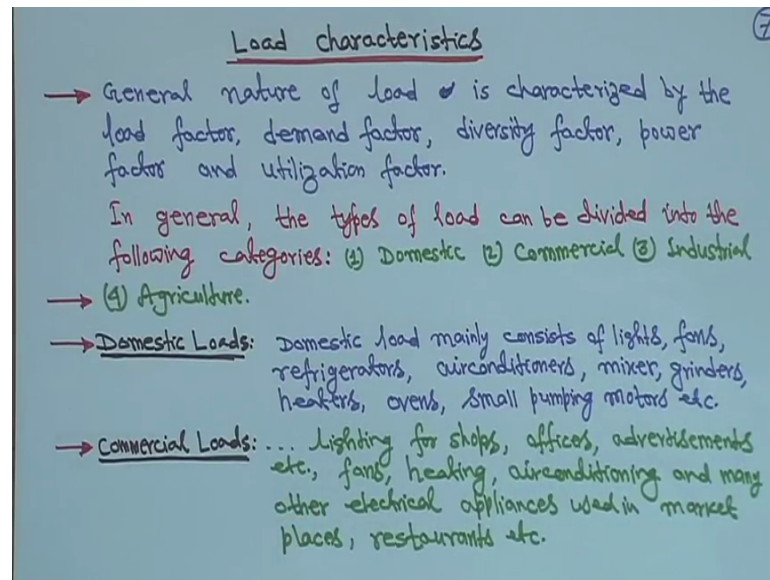 7
Load characteristics
→ General nature of load is characterized by the
load factor, demand factor, diversity factor, power
factor and utilization factor.
In general, the types of load can be divided into the
following categories: (1) Domestic (2) Commercial (3) Industrial
→ (4) Agriculture.
→ Domestic Loads: Domestic load mainly consists of lights, fans,
refrigerators, airconditioners, mixer, grinders,
heaters, ovens, small pumping motors etc.
→ Commercial Loads: ... Lighting for shops, offices, advertisements
etc., fans, heating, airconditioning and many
other electrical appliances used in market
places, restaurants etc.